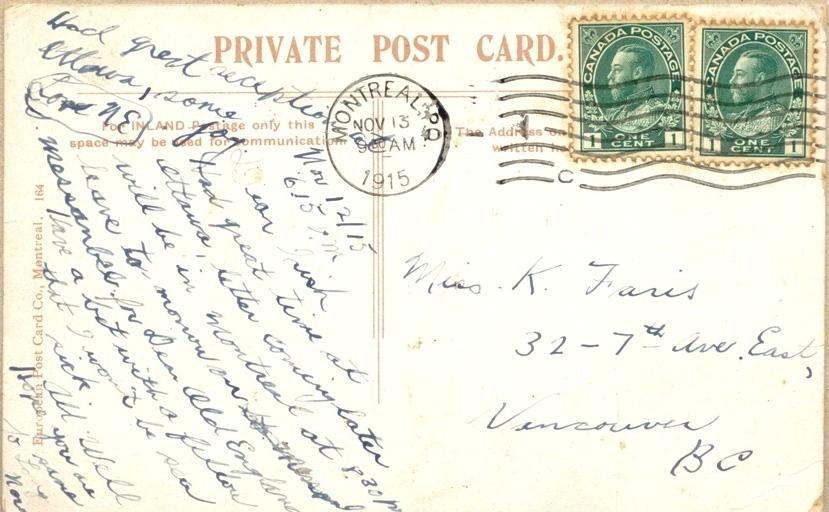 PRIVATE POST CARD.
For INLAND Postage only this
space may be used for communication
The Address on
written
MONTREAL, P.Q.
NOV 13
9 AM
1915
CANADA POSTAGE
1 ONE CENT 1
CANADA POSTAGE
1 ONE CENT 1
European Post Card Co., Montreal. 164
Nov 12/15
6.15 P.M
Had great reception
Ottawa, some
Love NE
Had great time at
Ottawa, letter coming later
will be in Montreal at 8.30 PM
leave to morrow on
messanbee for Dear Old England
Have a bet with a fellow
that I won't be sea
sick. All Well
you are
same
Miss. K. Faris
32-7th Ave. East,
Vancouver
BC